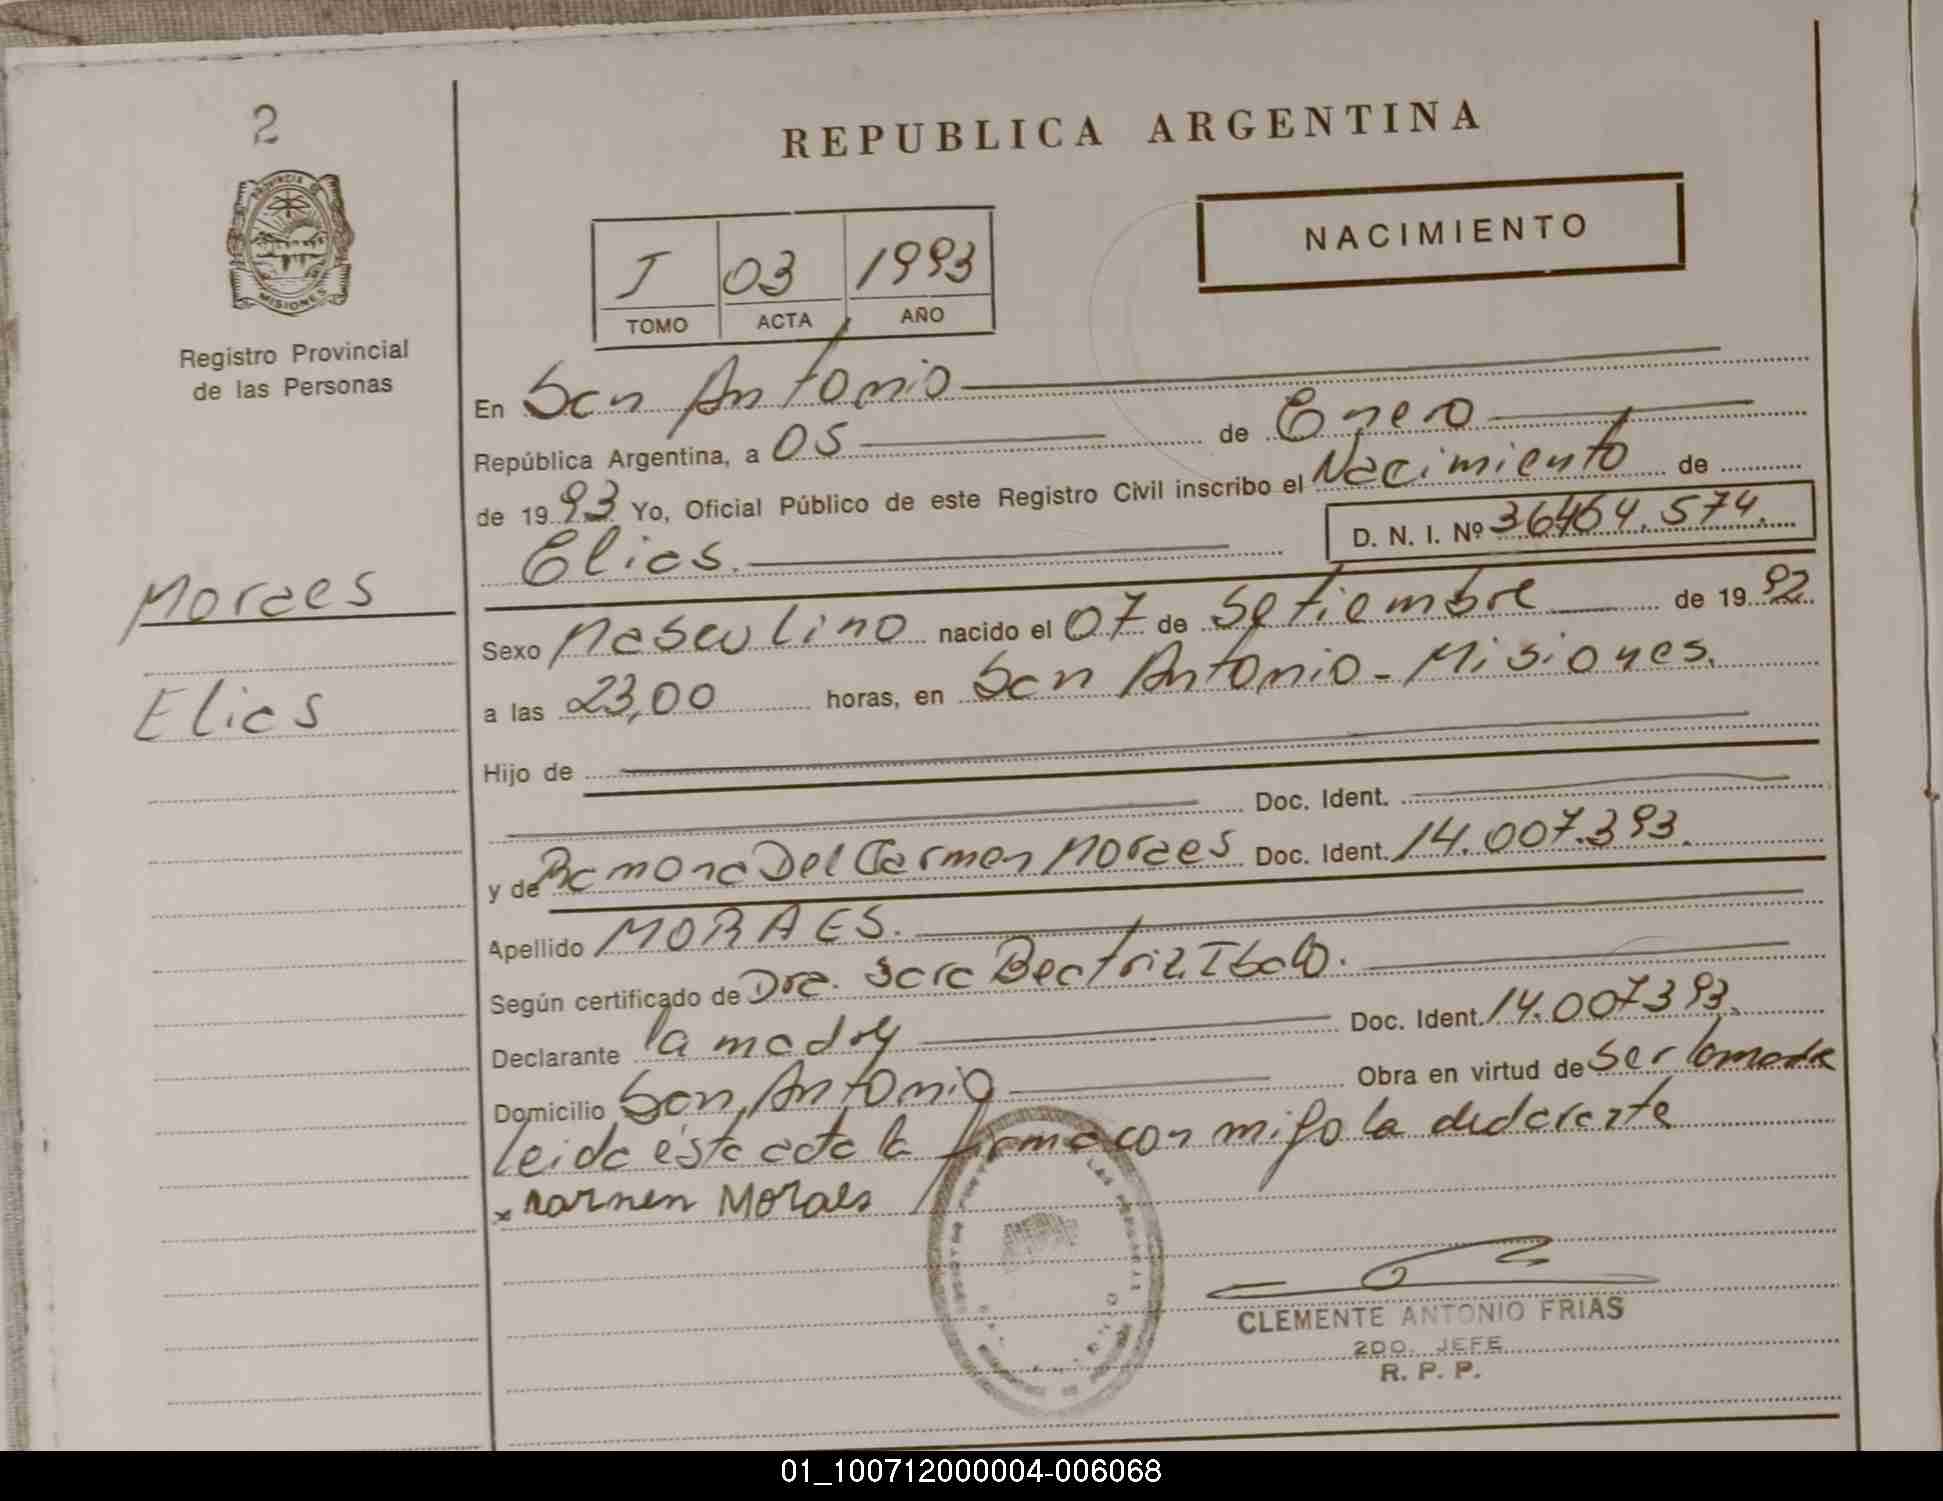 2
PROVINCIA DE
MISIONES
Registro Provincial
de las Personas
Moraes
Elias
REPUBLICA ARGENTINA
NACIMIENTO
I 03 1993
TOMO ACTA AÑO
En San Antonio
República Argentina, a 05 de Enero
de 1993 Yo, Oficial Público de este Registro Civil inscribo el Nacimiento de
Elias. D. N. I. Nº 36.464.574.
Sexo Masculino nacido el 07 de Setiembre de 1992
a las 23,00 horas, en San Antonio - Misiones.
Hijo de
Doc. Ident.
y de Ramona Del Carmen Moraes Doc. Ident. 14.007.393.
Apellido MORAES.
Según certificado de Dra. Sara Beatriz
Declarante la madre Doc. Ident. 14.007393.
Domicilio San Antonio Obra en virtud de ser la madre
leida ésta acta la firma con migo la declarante
x Carmen Moraes
CLEMENTE ANTONIO FRIAS
2DO. JEFE
R. P. P.
01_100712000004-006068